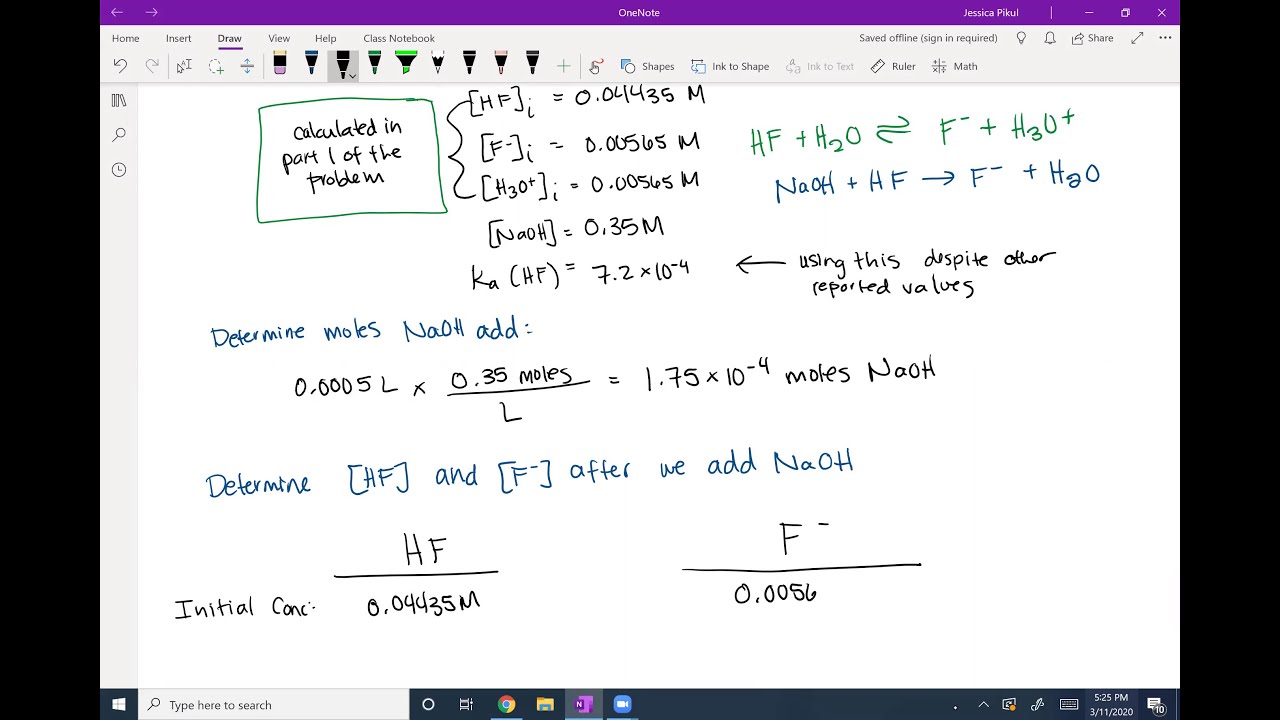 OneNote
Jessica Pikul
Home Insert Draw View Help Class Notebook
Saved offline (sign in required) Share
Shapes Ink to Shape Ink to Text Ruler Math
calculated in
part 1 of the
problem
[HF]i = 0.04435 M
[F-]i = 0.00565 M
[H3O+]i = 0.00565 M
[NaOH] = 0.35M
Ka (HF) = 7.2 × 10-4
HF + H2O ⇌ F- + H3O+
NaOH + HF → F- + H2O
← using this despite other
reported values
Determine moles NaOH add:
0.0005 L × 0.35 moles = 1.75 × 10-4 moles NaOH
L
Determine [HF] and [F-] after we add NaOH
HF F-
Initial Conc: 0.04435M 0.0056
Type here to search
5:25 PM
3/11/2020
10